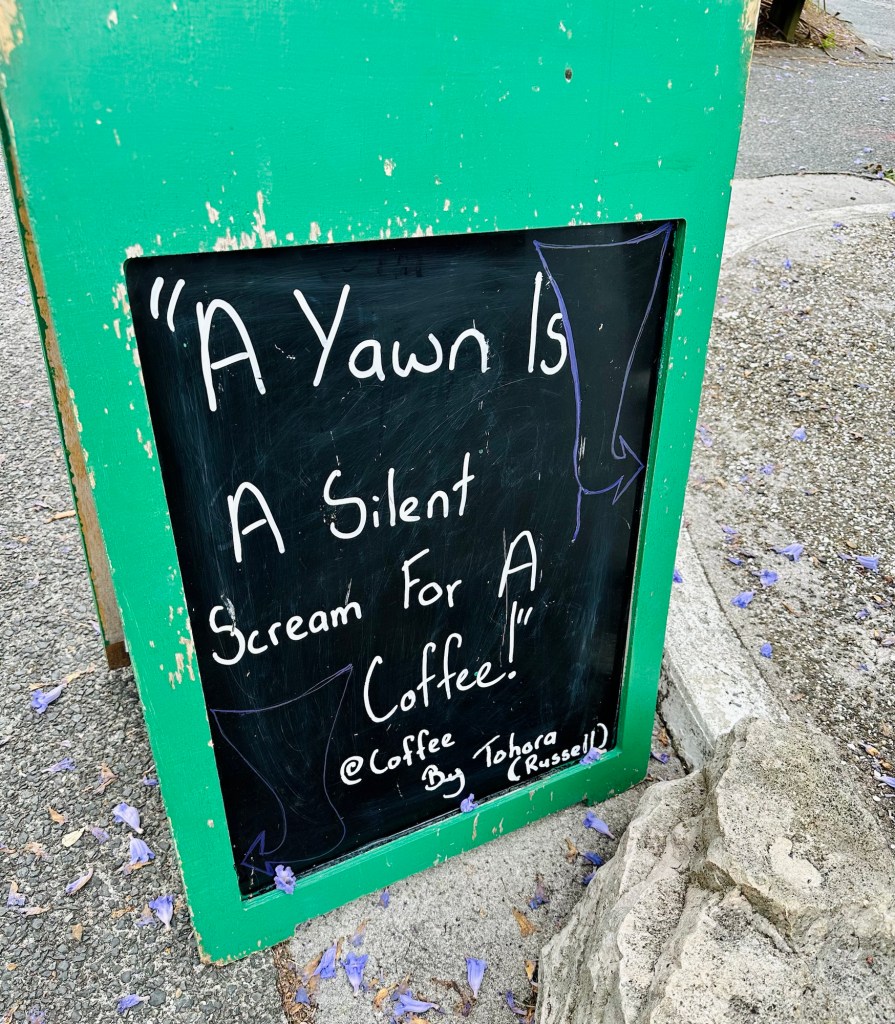 "A Yawn Is
A Silent
Scream For A
Coffee!"
@Coffee
By Tohora
(Russell)